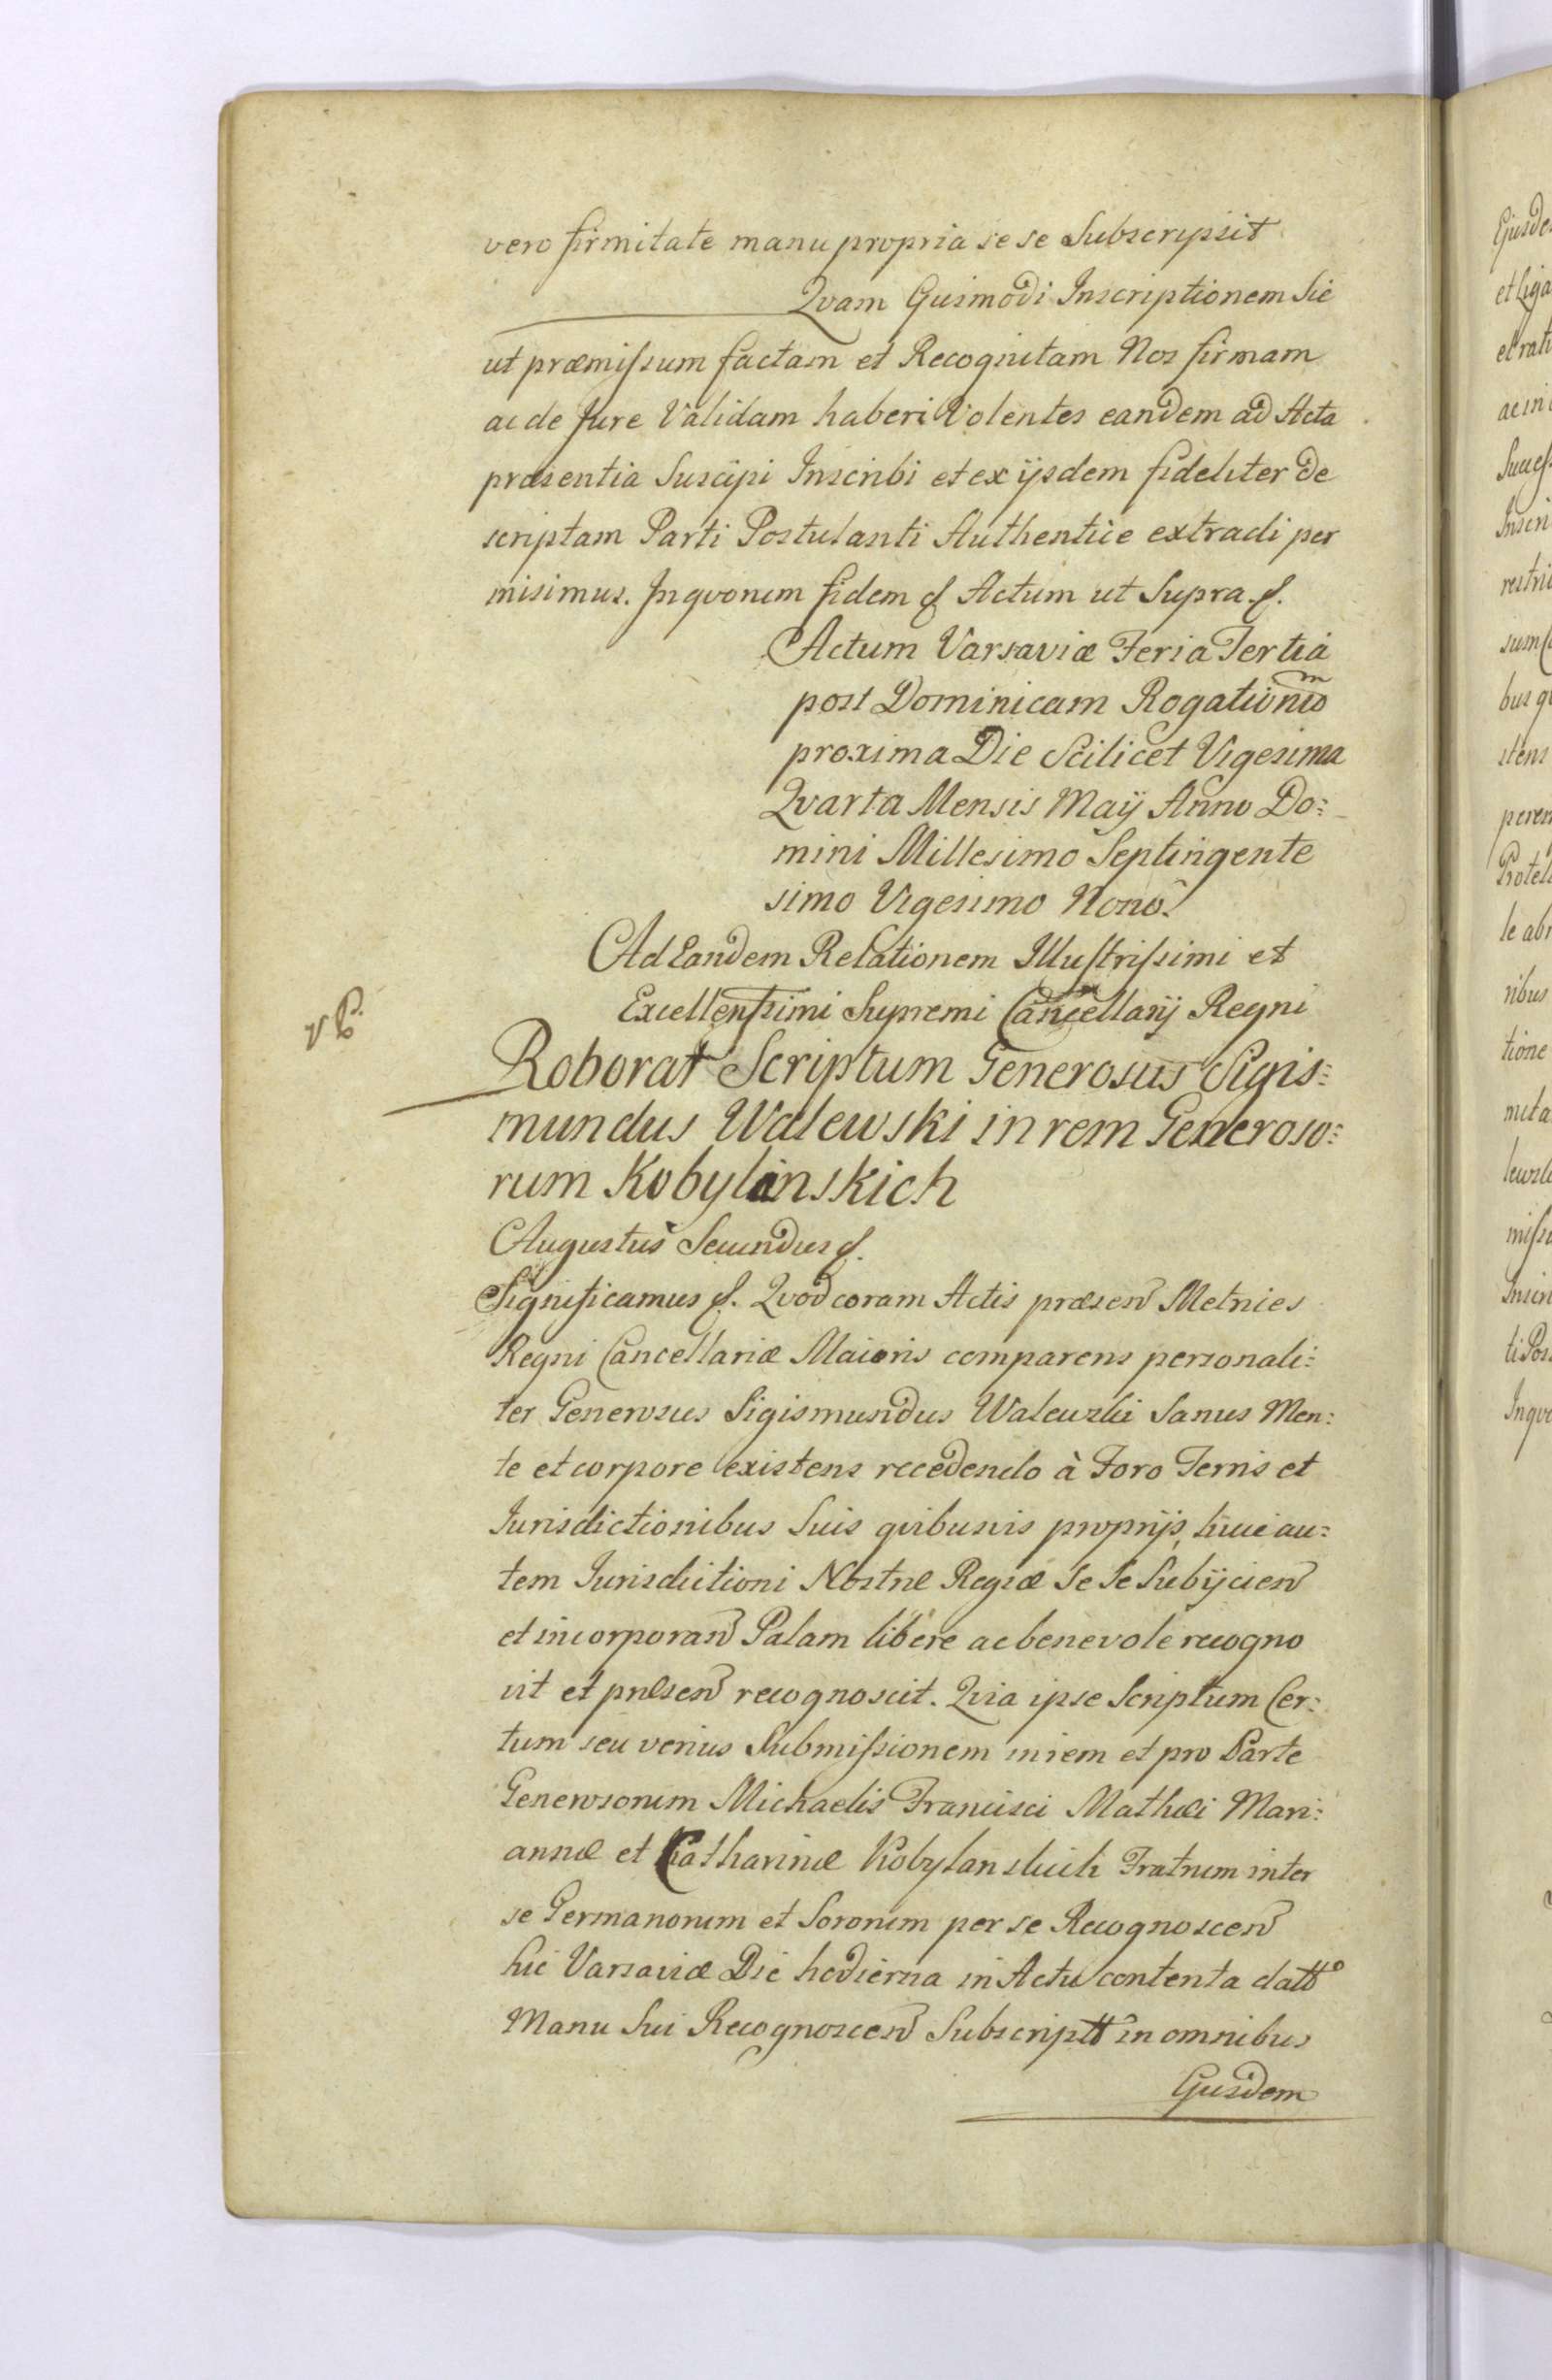 vero firmitate manu propria se se Subscripsit
Qvam Ejusmodi Inscriptionem Sic
ut præmissum factam et Recognitam Nos firmam
ac de Jure Validam haberi Volentes eandem ad Acta
præsentia Suscipi Inscribi et ex ijsdem fideliter de
scriptam Parti Postulanti Authentice extradi per
misimus. In qvorum fidem &. Actum ut Supra &.
Actum Varsaviæ Feria Tertia
post Dominicam Rogationũ
proxima Die Scilicet Vigesima
Qvarta Mensis Maÿ Anno Do:
mini Millesimo Septingente
simo Vigesimo Nono.
Ad Eandem Relationem Illustrissimi et
Excellentssimi Supremi Cancellarÿ Regni
Roborat Scriptum Generosus Sigis:
mundus Walewski in rem Generoso:
rum Kobylanskich
Augustus Secundus &.
Significamus &. Qvod coram Actis præsen Metrices
Regni Cancellariæ Maioris comparens personali:
ter Generosus Sigismundus Walewski Sanus Men:
te et corpore existens recedendo à Foro Terris et
Jurisdictionibus Suis qvibusvis proprijs, huic au:
tem Jurisdictioni Nostræ Regiæ Se Se Subijcien
et incorporan Palam libere ac benevole recogno
vit et præsen recognoscit. Qvia ipse Scriptum Cer:
tum seu verius Submissionem in rem et pro Parte
Generosorum Michaelis Francisci Mathæi Mari:
annæ et Catharinæ Kobylanskich Fratrum inter
se Germanorum et Sororum per se Recognoscen
hic Varsaviæ Die hodierna in Actu contenta datt°
Manu Sui Recognoscen Subscriptt in omnibus
Ejusdem